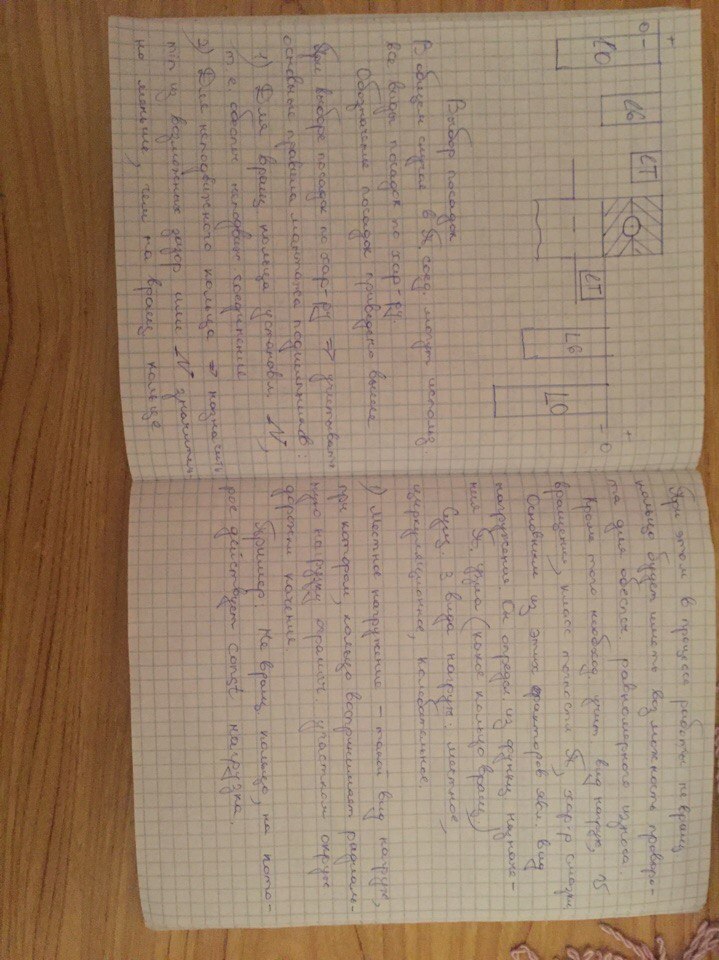 +
0
-
L0
L6
LT
LT
L6
L0
+
0
-
Выбор посадок
В общем случае в П. соед. могут использ
все виды посадок по хар-ру.
Обозначение посадок приведено выше
При выборе посадок по хар-ру ⇒ учитывать
основные правила монтажа подшипников:
1) Для вращ кольца установл N,
т е обесп неподвиж соединение
2) Для неподвижного кольца ⇒ назначить
min из возможных зазор или N значитель-
но меньше, чем на вращ кольце
При этом в процессе работы не вращ
кольцо будет иметь возможность провора-
та для обеспеч равномерного износа.
Кроме того необход учит вид нагруж, V
вращения, класс точности П, хар-р смазки
Основным из этих факторов явл вид
нагружения Он определ из функц назначе-
ния П. узла (какое кольцо вращ)
Сущ 3 вида нагруж: местное,
циркуляционное, колебательное.
1) Местное нагружение - такой вид нагруж,
при котором, кольцо воспринимает радиаль-
ную нагрузку огранич. участком окруж
дорожки качения.
Пример: Не вращ кольцо, на кото-
рое действует const нагрузка.